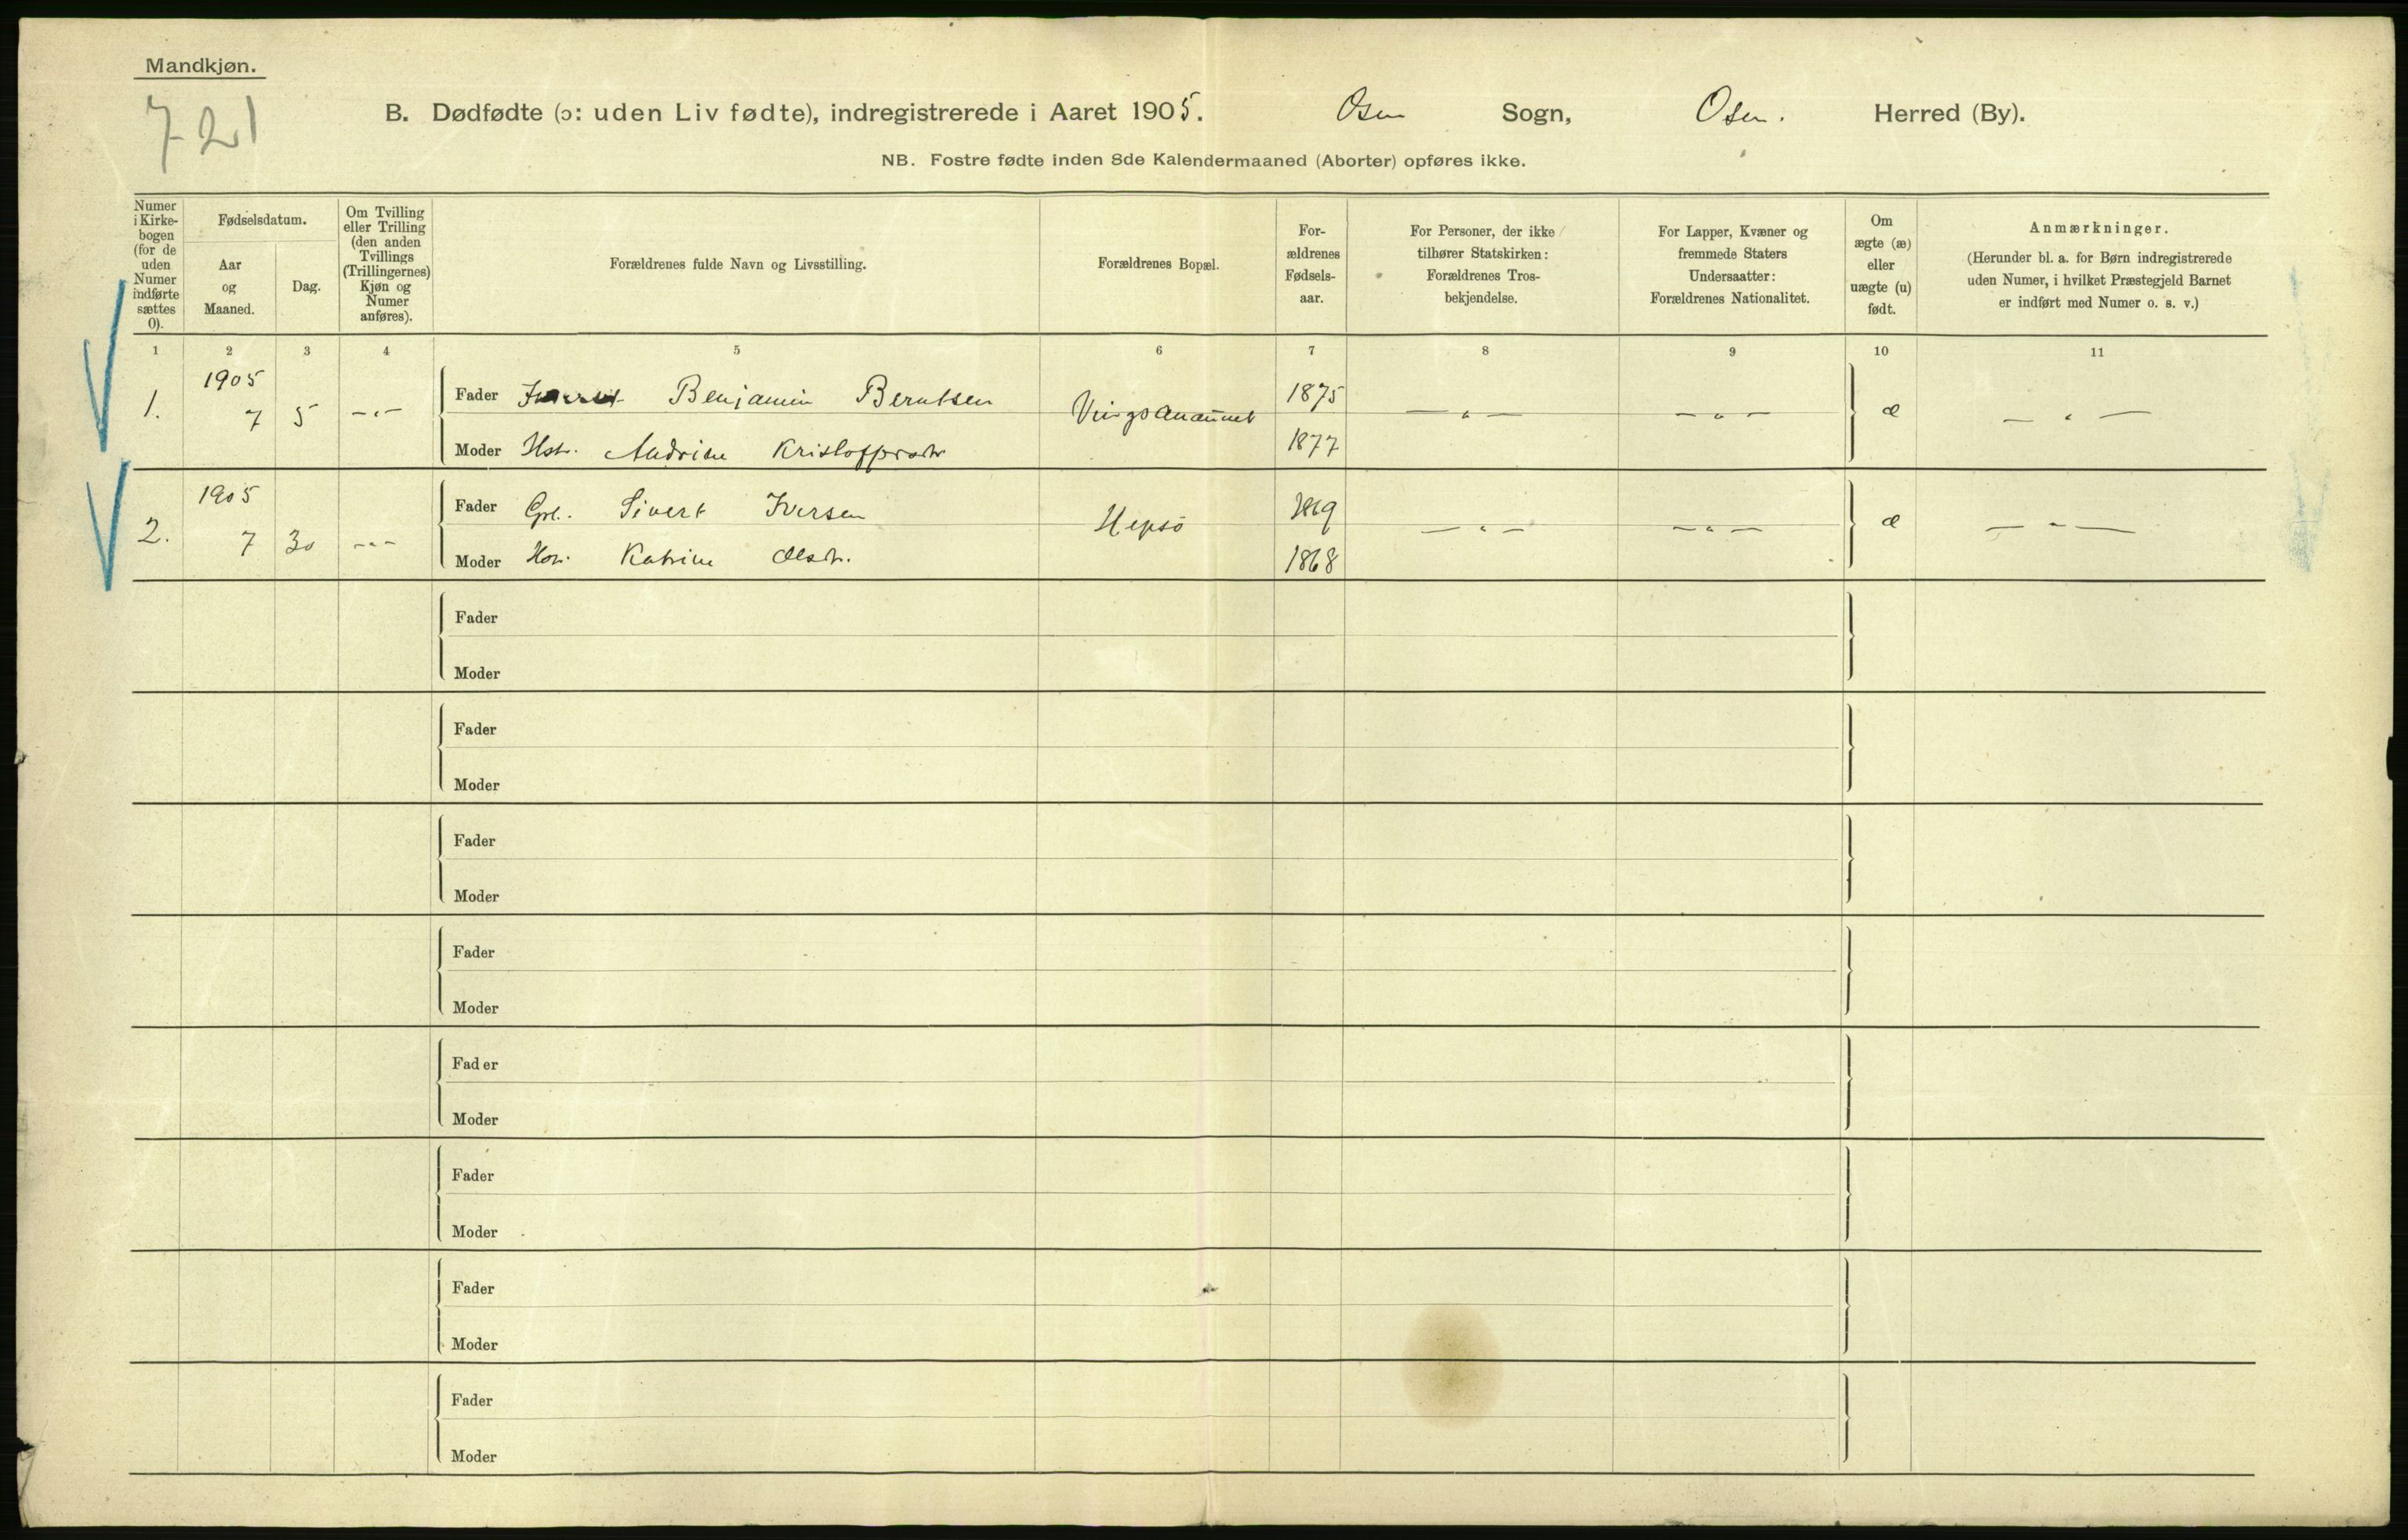 Mandkjøn.
721
B. Dødfødte (ɔ: uden Liv fødte), indregistrerede i Aaret 1905. Osen Sogn, Osen. Herred (By).
NB. Fostre fødte inden 8de Kalendermaaned (Aborter) opføres ikke.
Numer
i Kirke-
bogen
(for de
uden
Numer
indførte
sættes
0).
Fødselsdatum.
Aar
og
Maaned.
Dag.
Om Tvilling
eller Trilling
(den anden
Tvillings
(Trillingernes)
Kjøn og
Numer
anføres).
Forældrenes fulde Navn og Livsstilling.
Forældrenes Bopæl.
For-
ældrenes
Fødsels-
aar.
For Personer, der ikke
tilhører Statskirken:
Forældrenes Tros-
bekjendelse.
For Lapper, Kvæner og
fremmede Staters
Undersaatter:
Forældrenes Nationalitet.
Om
ægte (æ)
eller
uægte (u)
født.
Anmærkninger.
(Herunder bl. a. for Børn indregistrerede
uden Numer, i hvilket Præstegjeld Barnet
er indført med Numer o. s. v.)
1 2 3 4 5 6 7 8 9 10 11
1905
Fader Benjamin Berntsen 1875
1. 7 5 -"- -"- -"- æ -"-
Moder Hst. Andrine Kristoffersdtr 1877
1905
Fader Gpl. Sivert Iversen 1869
2. 7 30 -"- Hepsö -"- -"- æ -"-
Moder Katrine Olsdtr. 1868
Fader
Moder
Fader
Moder
Fader
Moder
Fader
Moder
Fader
Moder
Fader
Moder
Fader
Moder
Fader
Moder